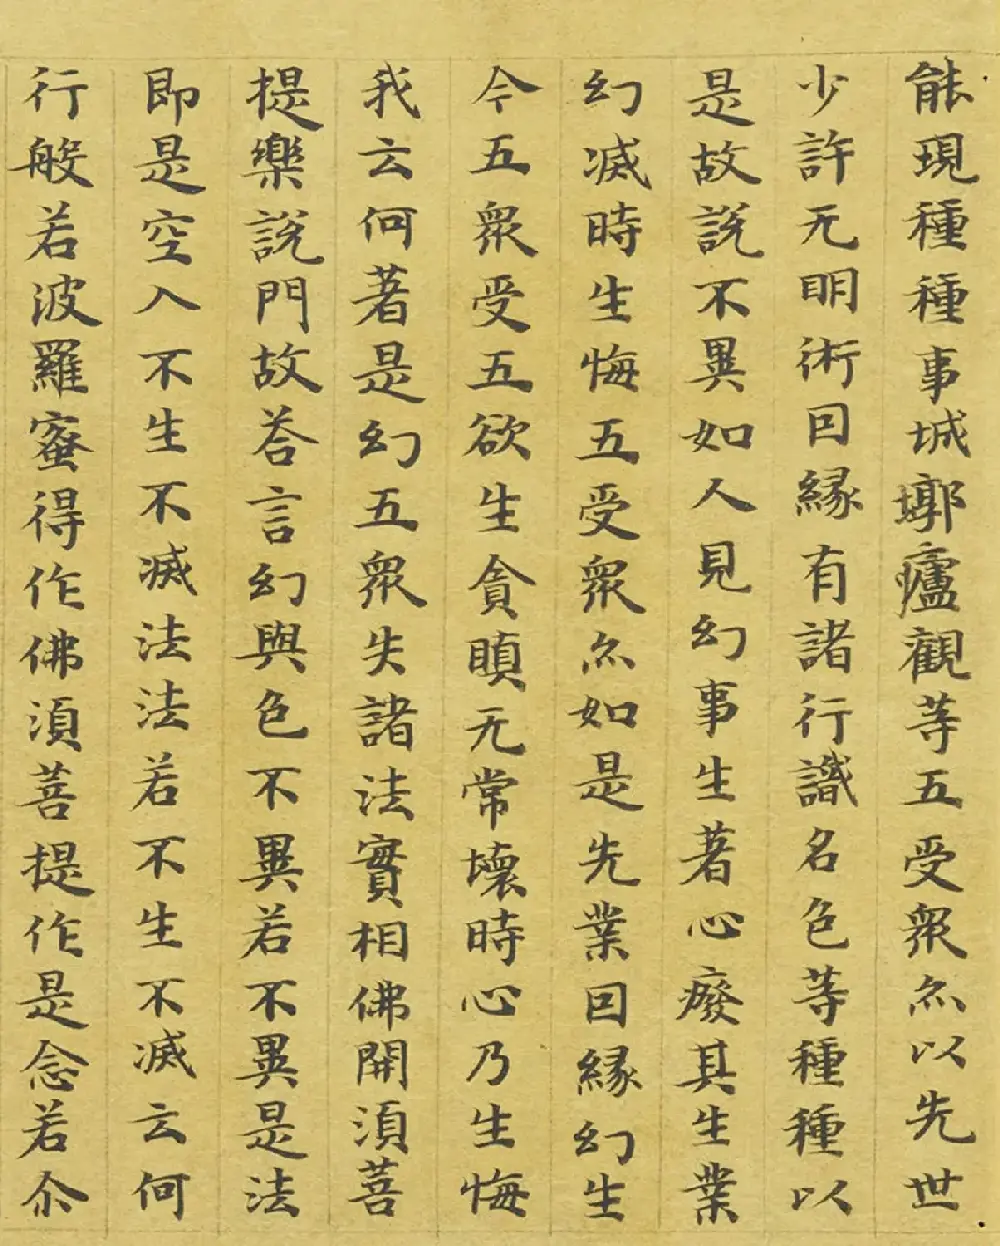 能現種種事城墎廬觀等五受眾亦以先世
少許无明術因緣有諸行識名色等種種以
是故說不異如人見幻事生著心癈其生業
幻滅時生悔五受眾亦如是先業因緣幻生
今五眾受五欲生貪瞋无常壞時心乃生悔
我云何著是幻五眾失諸法實相佛開須菩
提樂說門故荅言幻與色不異若不異是法
即是空入不生不滅法法若不生不滅云何
行般若波羅蜜得作佛須菩提作是念若尒